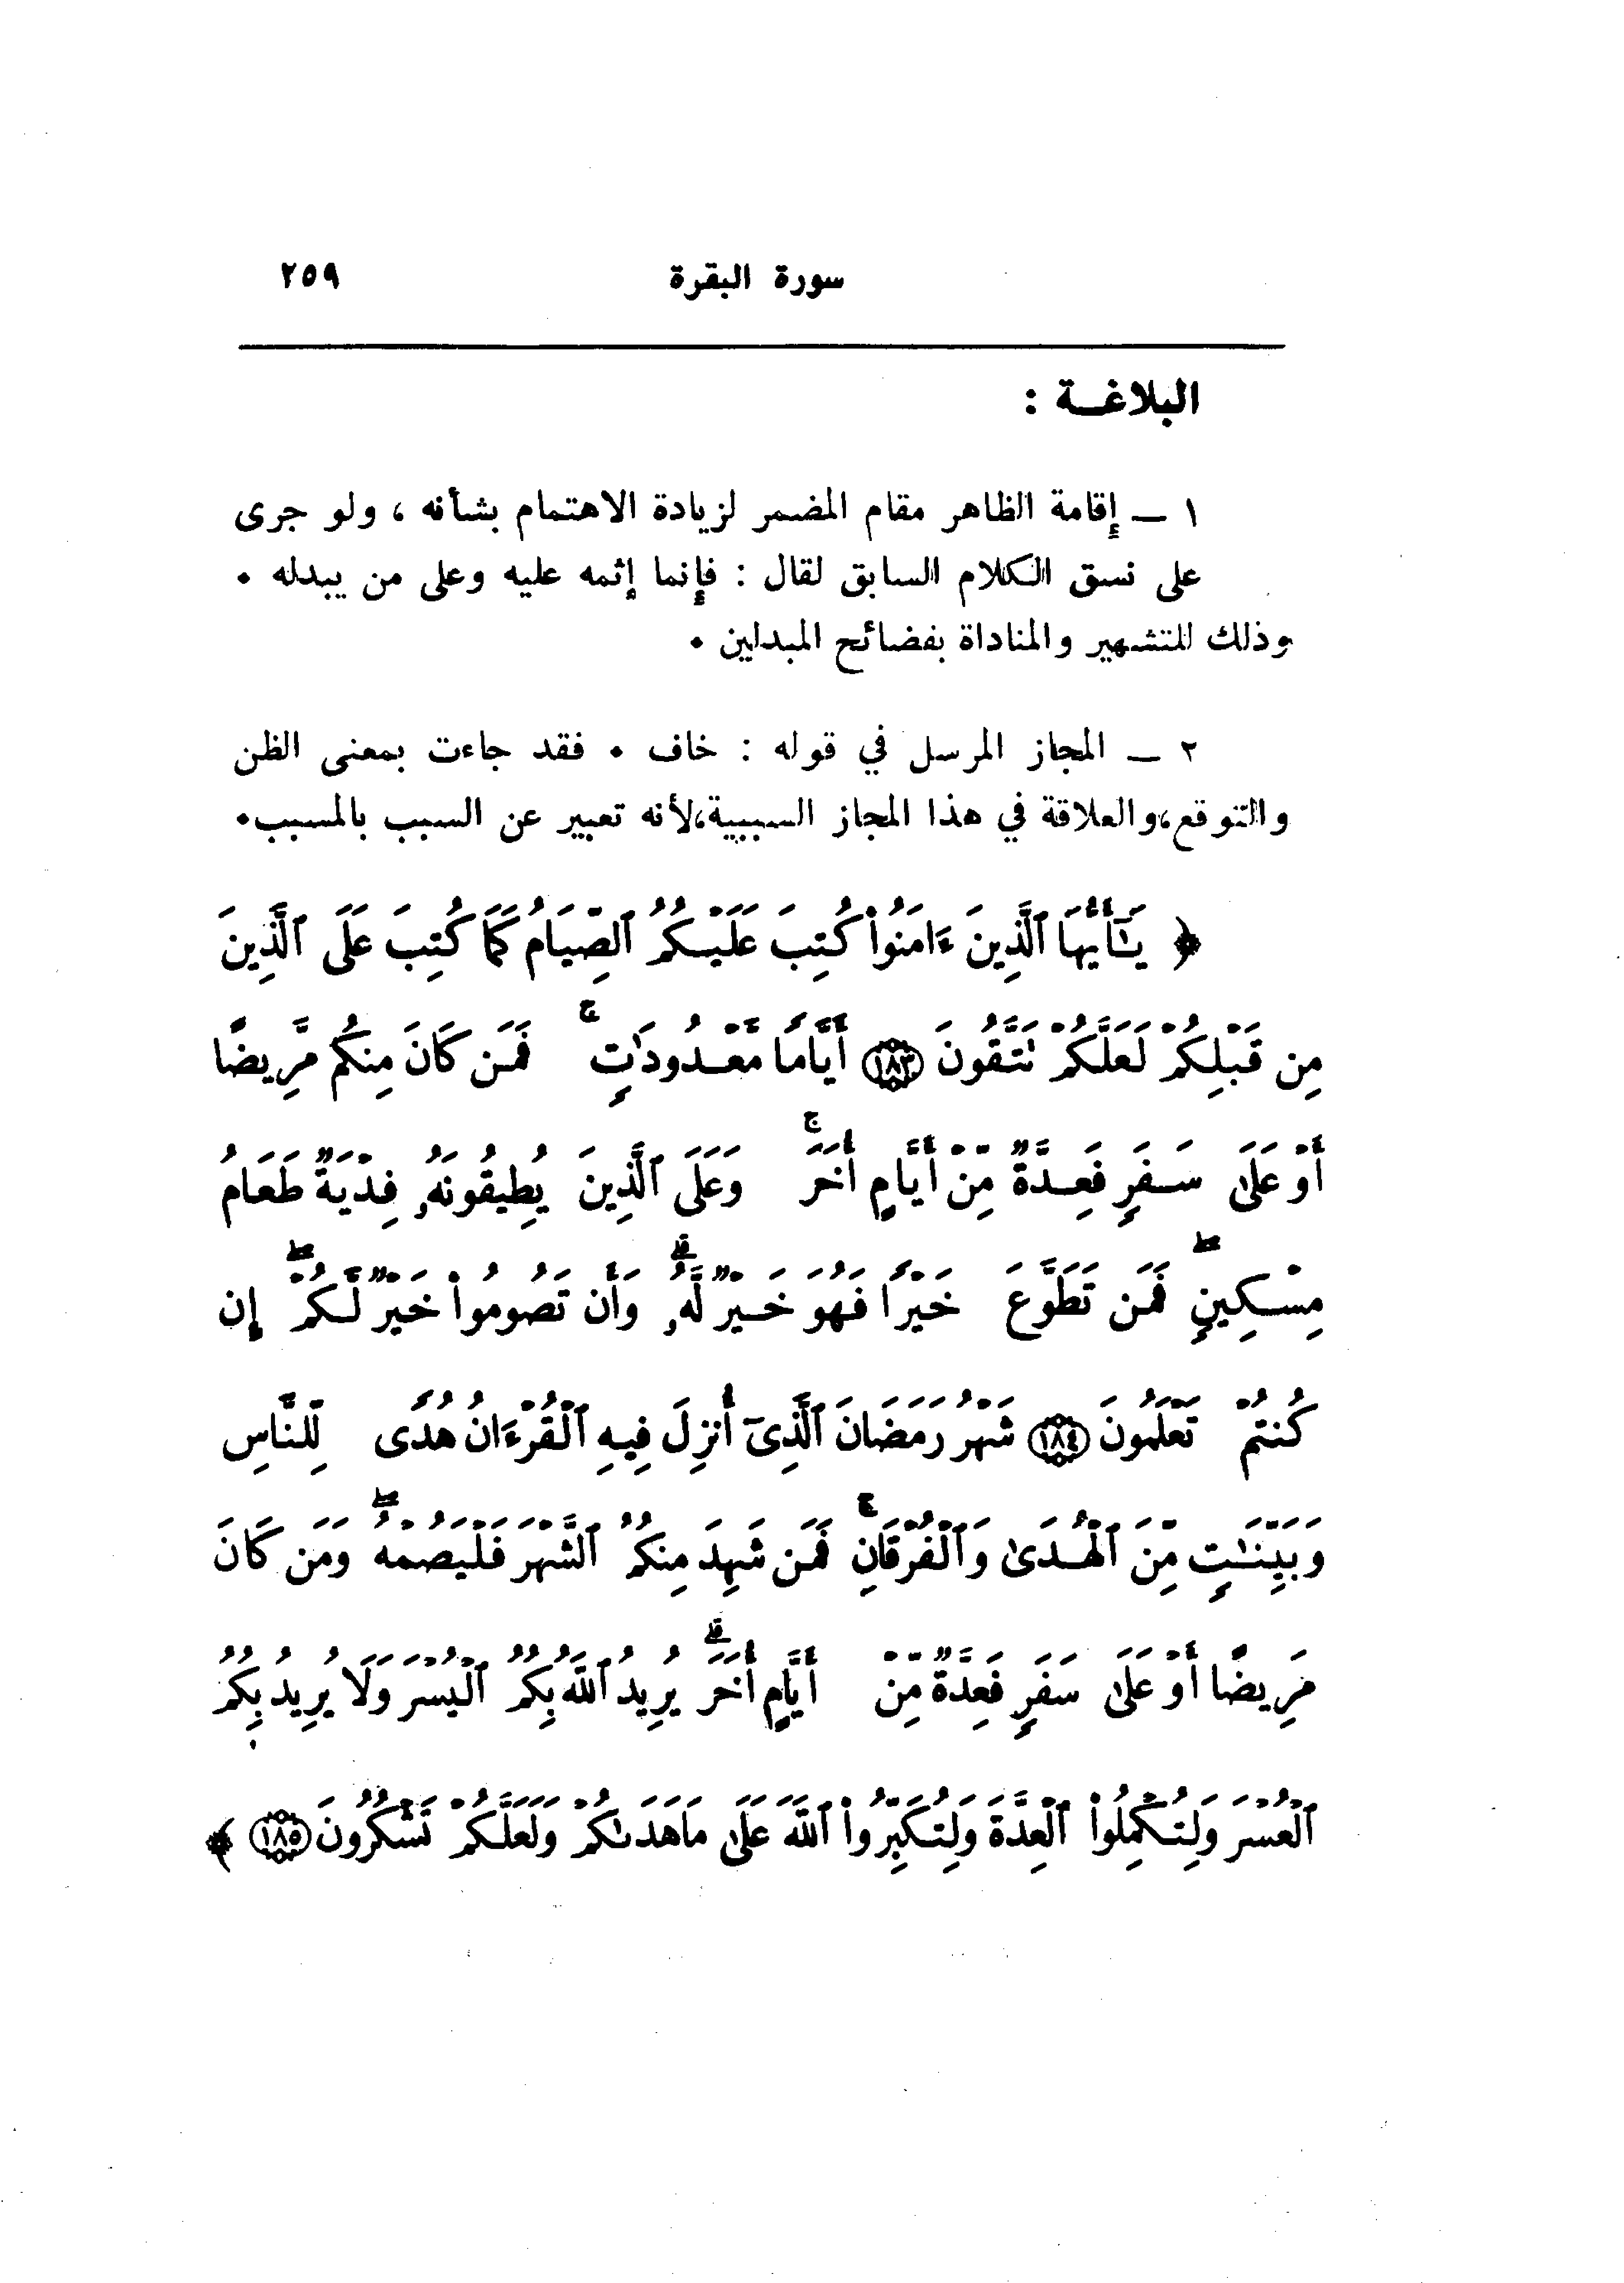 سورة البقرة ٢٥٩
البلاغـــة :
١ — إقامة الظاهر مقام المضمر لزيادة الاهتمام بشأنه ، ولو جرى
على نسق الكلام السابق لقال : فإنما إثمه عليه وعلى من يبدله .
وذلك للتشهير والمناداة بفضائح المبدلين .
٢ — المجاز المرسل في قوله : خاف . فقد جاءت بمعنى الظن
والتوقع،والعلاقة في هذا المجاز السببية،لأنه تعبير عن السبب بالمسبب.
﴿ يَـٰٓأَيُّهَا ٱلَّذِينَ ءَامَنُوا۟ كُتِبَ عَلَيْكُمُ ٱلصِّيَامُ كَمَا كُتِبَ عَلَى ٱلَّذِينَ
مِن قَبْلِكُمْ لَعَلَّكُمْ تَتَّقُونَ ١٨٣ أَيَّامًا مَّعْدُودَٰتٍۚ فَمَن كَانَ مِنكُم مَّرِيضًا
أَوْ عَلَىٰ سَفَرٍ فَعِدَّةٌ مِّنْ أَيَّامٍ أُخَرَۚ وَعَلَى ٱلَّذِينَ يُطِيقُونَهُۥ فِدْيَةٌ طَعَامُ
مِسْكِينٍۖ فَمَن تَطَوَّعَ خَيْرًا فَهُوَ خَيْرٌ لَّهُۥۗ وَأَن تَصُومُوا۟ خَيْرٌ لَّكُمْۖ إِن
كُنتُمْ تَعْلَمُونَ ١٨٤ شَهْرُ رَمَضَانَ ٱلَّذِىٓ أُنزِلَ فِيهِ ٱلْقُرْءَانُ هُدًى لِّلنَّاسِ
وَبَيِّنَـٰتٍ مِّنَ ٱلْهُدَىٰ وَٱلْفُرْقَانِۚ فَمَن شَهِدَ مِنكُمُ ٱلشَّهْرَ فَلْيَصُمْهُۖ وَمَن كَانَ
مَرِيضًا أَوْ عَلَىٰ سَفَرٍ فَعِدَّةٌ مِّنْ أَيَّامٍ أُخَرَۗ يُرِيدُ ٱللَّهُ بِكُمُ ٱلْيُسْرَ وَلَا يُرِيدُ بِكُمُ
ٱلْعُسْرَ وَلِتُكْمِلُوا۟ ٱلْعِدَّةَ وَلِتُكَبِّرُوا۟ ٱللَّهَ عَلَىٰ مَا هَدَىٰكُمْ وَلَعَلَّكُمْ تَشْكُرُونَ ١٨٥ ﴾